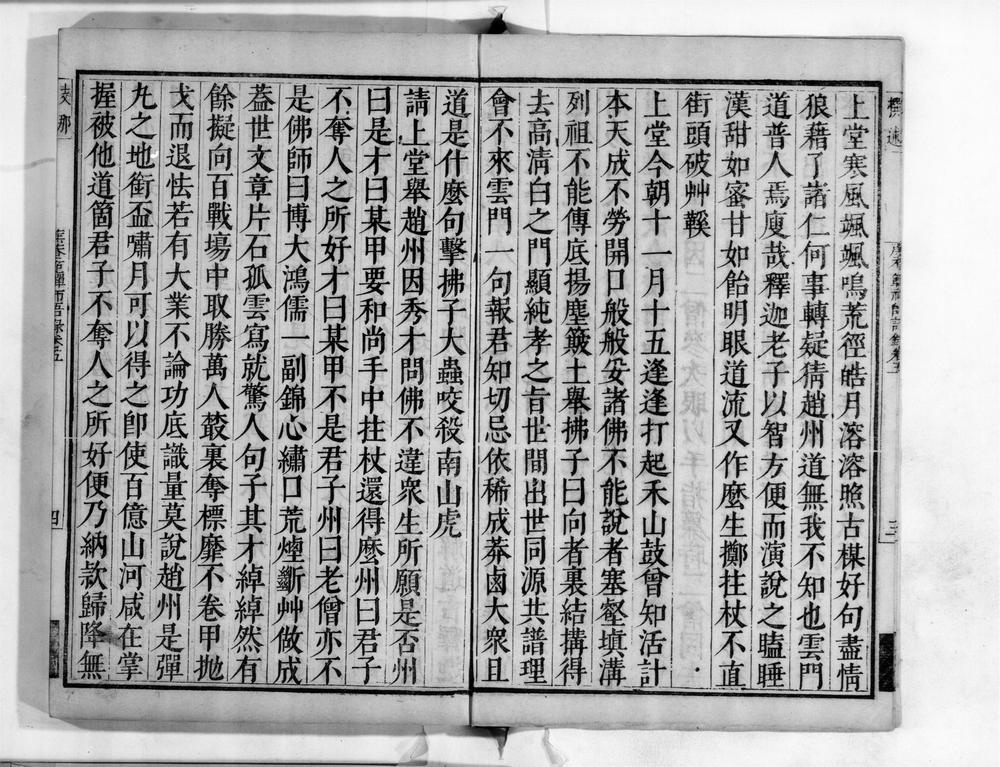 上堂寒風颯颯鳴荒徑皓月溶溶照古楳好句盡情
狼藉了諸仁何事轉疑猜趙州道無我不知也雲門
道普人焉廋哉釋迦老子以智方便而演說之瞌睡
漢甜如蜜甘如飴明眼道流又作麼生擲拄杖不直
街頭破艸鞵
上堂今朝十一月十五逢逢打起禾山鼓曾知活計
本天成不勞開口般般安諸佛不能說者塞壑填溝
列祖不能傳底揚塵簸土舉拂子曰向者裏結搆得
去高清白之門顯純孝之旨世間出世同源共譜理
會不來雲門一句報君知切忌依稀成莽鹵大衆且
道是什麼句擊拂子大蟲咬殺南山虎
請上堂舉趙州因秀才問佛不違衆生所願是否州
曰是才曰某甲要和尚手中拄杖還得麼州曰君子
不奪人之所好才曰某甲不是君子州曰老僧亦不
是佛師曰博大鴻儒一副錦心繡口荒煙斷艸做成
蓋世文章片石孤雲寫就驚人句子其才綽綽然有
餘擬向百戰場中取勝萬人叢裏奪標靡不卷甲拋
戈而退怯若有大業不論功底識量莫說趙州是彈
九之地銜盃嘯月可以得之卽使百億山河咸在掌
握被他道箇君子不奪人之所好便乃納款歸降無
三
四
支那